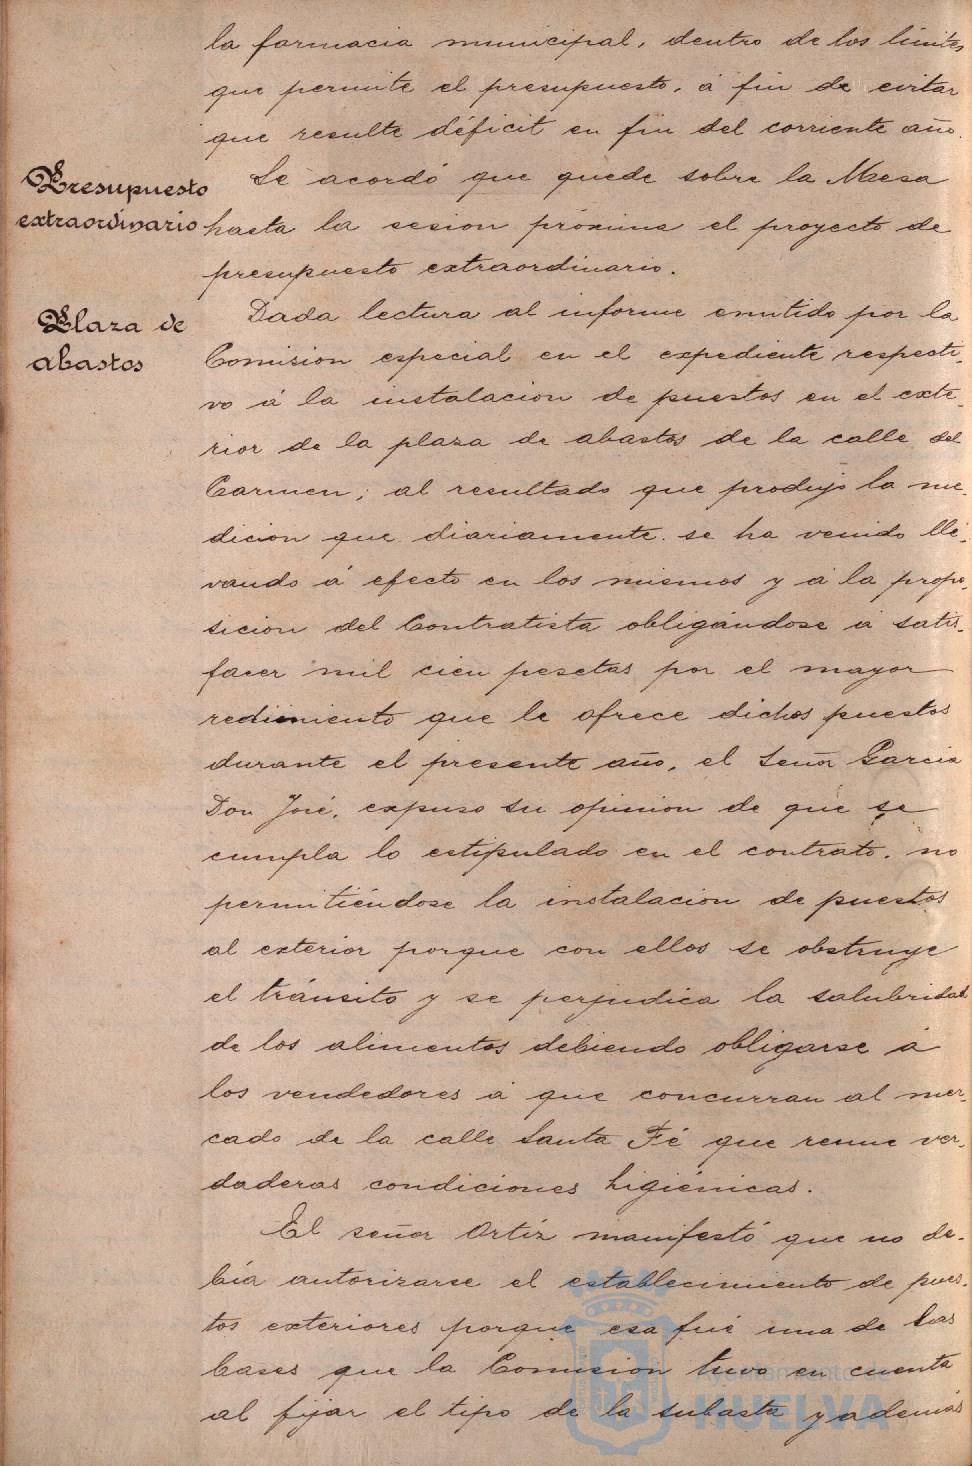 la farmacia municipal, dentro de los límites
que permite el presupuesto, á fin de evitar
que resulte déficit en fin del corriente año.
Presupuesto
extraordinario
Se acordó que quede sobre la Mesa
hasta la sesion próxima el proyecto de
presupuesto extraordinario.
Plaza de
abastos
Dada lectura al informe emitido por la
Comision especial en el expediente respecti-
vo á la instalacion de puestos en el exte-
rior de la plaza de abastos de la calle del
Carmen; al resultado que produjo la me-
dicion que diariamente se ha venido lle-
vando á efecto en los mismos y á la propo-
sicion del Contratista obligándose á satis-
facer mil cien pesetas por el mayor
redimiento que le ofrece dichos puestos
durante el presente año, el Señor Garcia
Don José, expuso su opinion de que se
cumpla lo estipulado en el contrato, no
permitiéndose la instalacion de puestos
al exterior porque con ellos se obstruye
el tránsito y se perjudica la salubridad
de los alimentos debiendo obligarse á
los vendedores á que concurran al mer-
cado de la calle Santa Fé que reune ver-
daderas condiciones higiénicas.
El señor Ortíz manifestó que no de-
bía autorizarse el establecimiento de pues-
tos exteriores porque esa fué una de las
bases que la Comision tuvo en cuenta
al fijar el tipo de la subasta y además
Ayuntamiento de
HUELVA